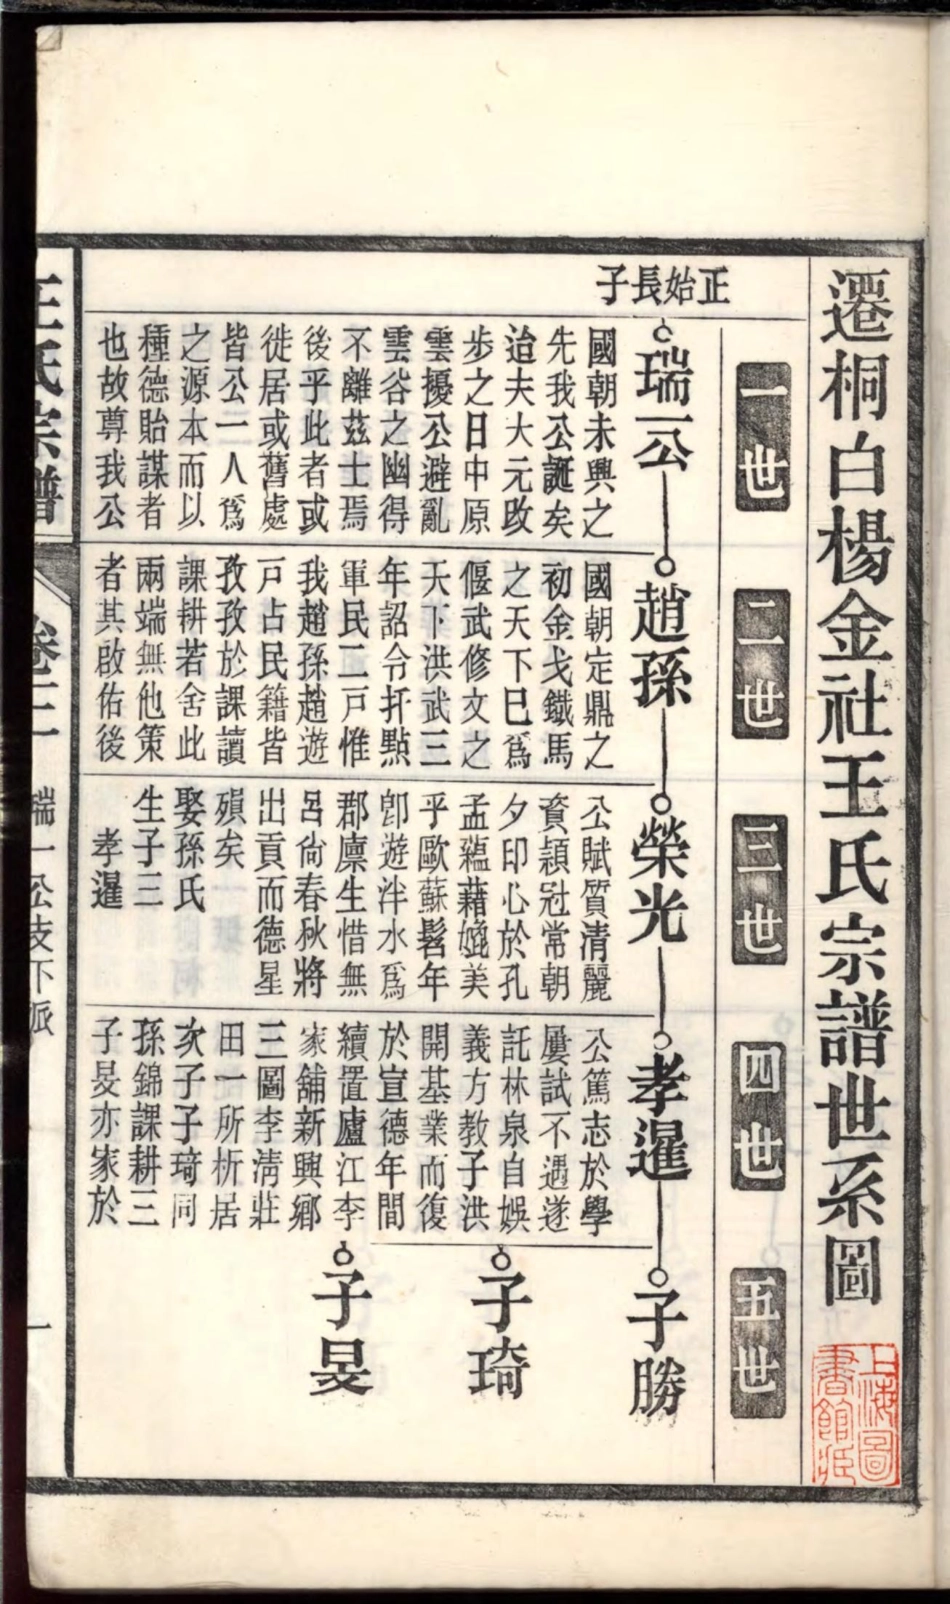 遷桐白楊金社王氏宗譜世系圖
上海圖
書館藏
一世
二世
三世
四世
五世
正始長子
瑞一公
國朝未興之
先我公誕矣
迨夫大元改
步之日中原
雲擾公避亂
雲谷之幽得
不離茲土焉
後乎此者或
徙居或舊處
皆公一人爲
之源本而以
種德貽謀者
也故尊我公
趙孫
國朝定鼎之
初金戈鐵馬
之天下巳爲
偃武修文之
天下洪武三
年詔令扦點
軍民二戸惟
我趙孫趙遊
戸占民籍皆
孜孜於課讀
課耕若舍此
兩端無他策
者其啟佑後
榮光
公賦質清麗
資穎冠常朝
夕印心於孔
孟蘊藉媲美
乎歐蘇髫年
卽遊泮水爲
郡廪生惜無
呂尙春秋將
出貢而德星
殞矣
娶孫氏
生子三
孝暹
孝暹
公篤志於學
屢試不遇遂
託林泉自娛
義方教子洪
開基業而復
於宣德年間
續置廬江李
家舖新興鄉
三圖李清莊
田一所析居
次子子琦同
孫錦課耕三
子旻亦家於
子勝
子琦
子旻
王氏宗譜
卷二
瑞一公支下派
一